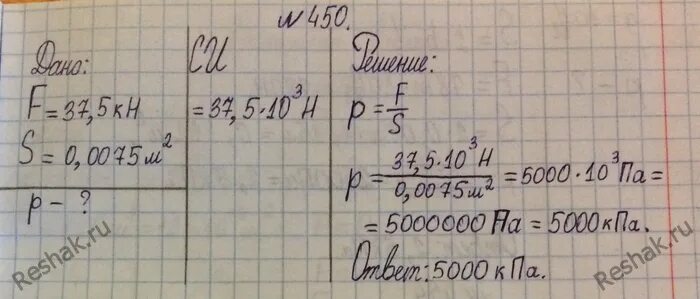 № 450.
Дано:
F = 37,5 кН
S = 0,0075 м²
p – ?
СИ
= 37,5·10³ Н
Решение:
p = F/S
p = 37,5·10³ Н / 0,0075 м² = 5000·10³ Па =
= 5000000 Па = 5000 кПа.
Ответ: 5000 кПа.
Reshak.ru
Reshak.ru